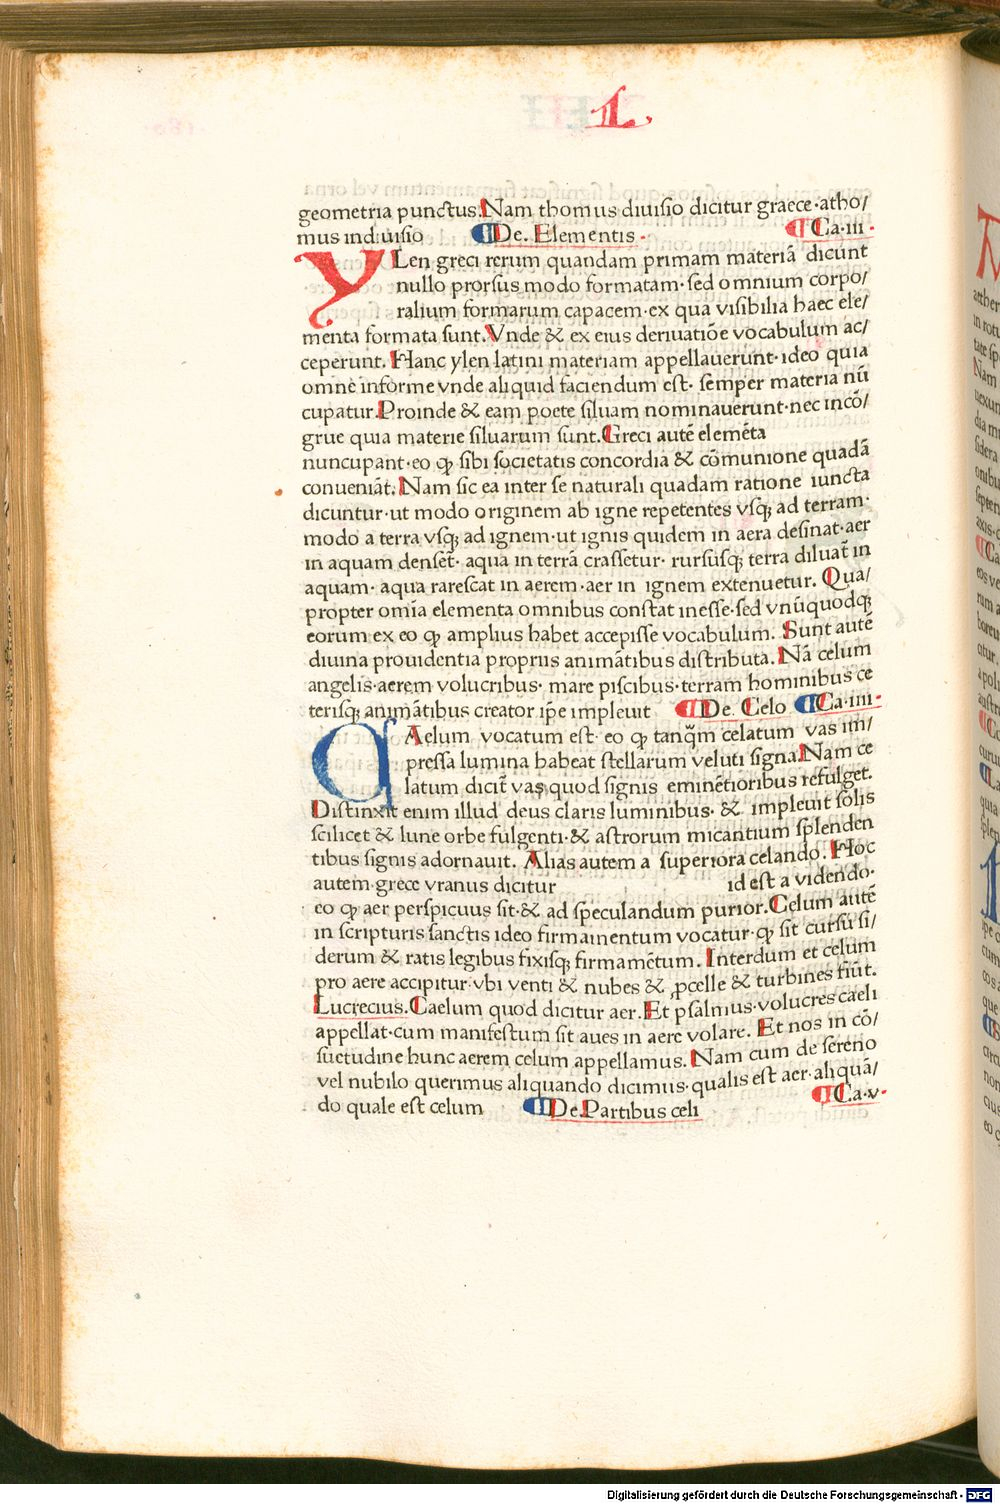 L.
geometria punctus. Nam thomus diuisio dicitur graece·atho/
mus indiuisio De. Elementis· Ca·iii·
YLen greci rerum quandam primam materiā dicunt
nullo prorsus modo formatam·sed omnium corpo/
ralium formarum capacem·ex qua visibilia haec ele/
menta formata sunt. Vnde & ex eius deriuatiōe vocabulum ac/
ceperunt. Hanc ylen latini materiam appellauerunt·ideo quia
omne informe vnde aliquid faciendum est· semper materia nū
cupatur. Proinde & eam poete siluam nominauerunt·nec incō/
grue quia materie siluarum sunt. Greci autē elemēta
nuncupant·eo ꝙ sibi societatis concordia & cōmunione quadā
conueniāt. Nam sic ea inter se naturali quadam ratione iuncta
dicuntur·ut modo originem ab igne repetentes vsqꝫ ad terram·
modo a terra vsqꝫ ad ignem·ut ignis quidem in aera desinat·aer
in aquam denset· aqua in terrā crassetur· rursusqꝫ terra diluat̃ in
aquam· aqua rarescat in aerem·aer in ignem extenuetur. Qua/
propter omīa elementa omnibus constat inesse·sed vnūquodqꝫ
eorum ex eo ꝙ amplius habet accepisse vocabulum. Sunt autē
diuina prouidentia propriis animātibus distributa. Nā celum
angelis·aerem volucribus· mare piscibus·terram hominibus ce
terisqꝫ animātibus creator ip̄e impleuit De. Celo Ca·iiii·
CAelum vocatum est· eo ꝙ tanqm̄ celatum vas im/
pressa lumina habeat stellarum veluti signa. Nam ce
latum dicit̃ vas quod signis eminētioribus refulget.
Distinxit enim illud deus claris luminibus· & impleuit solis
scilicet & lune orbe fulgenti·& astrorum micantium splenden
tibus signis adornauit. Alias autem a superiora celando. Hoc
autem·grece vranus dicitur id est a videndo·
eo ꝙ aer perspicuus sit·& ad speculandum purior. Celum autē
in scripturis sanctis ideo firmamentum vocatur·ꝙ sit cursu si/
derum & ratis legibus fixisqꝫ firmamētum. Interdum et celum
pro aere accipitur·vbi venti & nubes & ꝓcelle & turbines fiūt.
Lucrecius. Caelum quod dicitur aer. Et psalmus·volucres caeli
appellat·cum manifestum sit aues in aere volare. Et nos in cō/
suetudine hunc aerem celum appellamus. Nam cum de sereno
vel nubilo querimus aliquando dicimus·qualis est aer·aliquā/
do quale est celum De Partibus celi Ca·v·
Digitalisierung gefördert durch die Deutsche Forschungsgemeinschaft - DFG